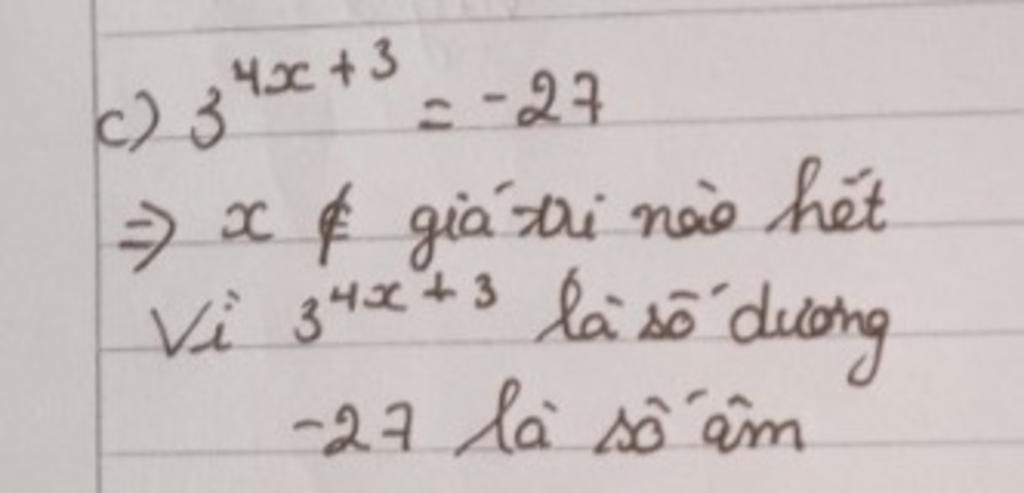 c) 3^{4x+3} = -27
⇒ x ∉ giá trị nào hết
Vì 3^{4x+3} là số dương
-27 là số âm